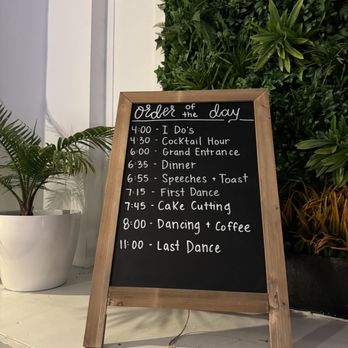 order of the day
4:00 - I Do's
4:30 - Cocktail Hour
6:00 - Grand Entrance
6:35 - Dinner
6:55 - Speeches + Toast
7:15 - First Dance
7:45 - Cake Cutting
8:00 - Dancing + Coffee
11:00 - Last Dance